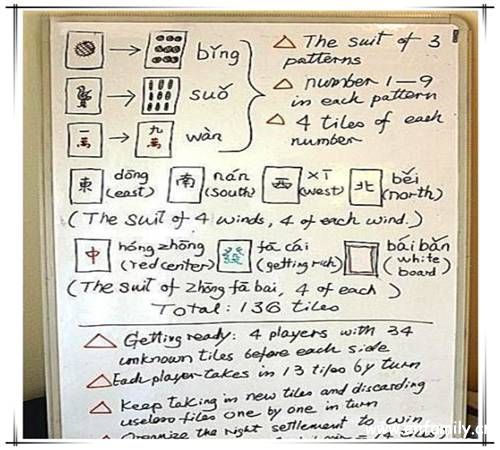 bǐng
suǒ
一萬 九萬 wàn
△ The suit of 3 patterns
△ number 1—9 in each pattern
△ 4 tiles of each number
東 dōng (east) 南 nán (south) 西 xī (west) 北 běi (north)
(The suit of 4 winds, 4 of each wind.)
中 hóng zhōng (red center) 發 fā cái (getting rich) bái bǎn (white board)
(The suit of zhōng fā bai, 4 of each)
Total: 136 tiles
△ Getting ready: 4 players with 34
unknown tiles before each side
△ Each player takes in 13 tiles by turn
△ Keep taking in new tiles and discarding
useless tiles one by one in turn
Organize the right settlement to win
= 14 tiles)